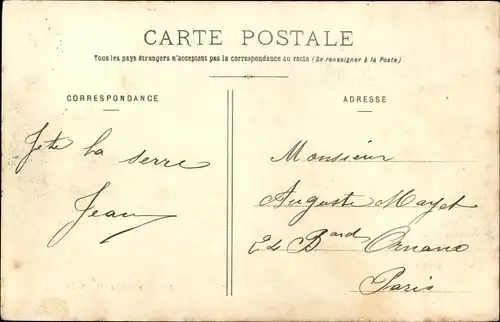 CARTE POSTALE
Tous les pays étrangers n'acceptent pas la correspondance au recto (Se renseigner à la Poste)
CORRESPONDANCE
ADRESSE
Je te la serre
Jean
Monsieur
Auguste Mayet
Bard Ornano
Paris